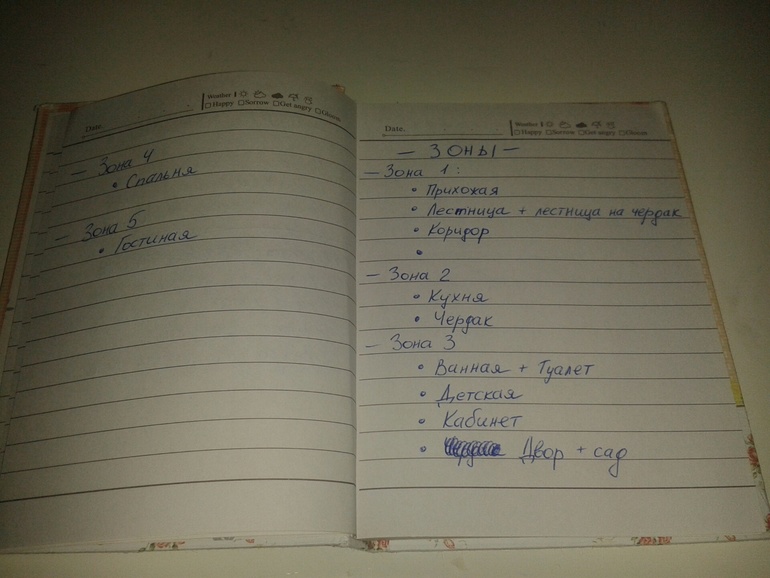 Date.
Weather
Happy Sorrow Get angry Obsess
— Зона 4
• Спальня
— Зона 5
• Гостиная
Date.
Weather
Happy Sorrow Get angry Obsess
— ЗОНЫ —
— Зона 1:
• Прихожая
• Лестница + лестница на чердак
• Коридор
•
— Зона 2
• Кухня
• Чердак
— Зона 3
• Ванная + Туалет
• Детская
• Кабинет
• Двор + сад